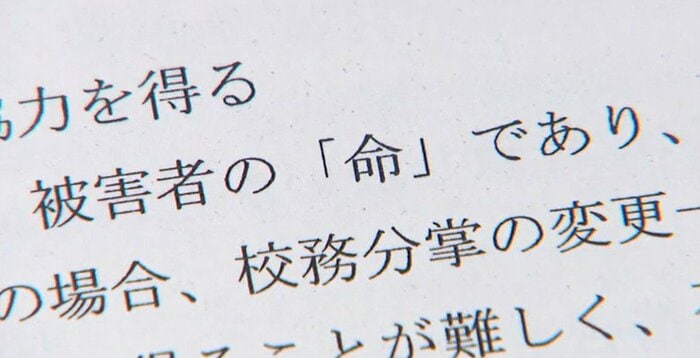 力を得る
被害者の「命」であり、
の場合、校務分掌の変更
ることが難しく、